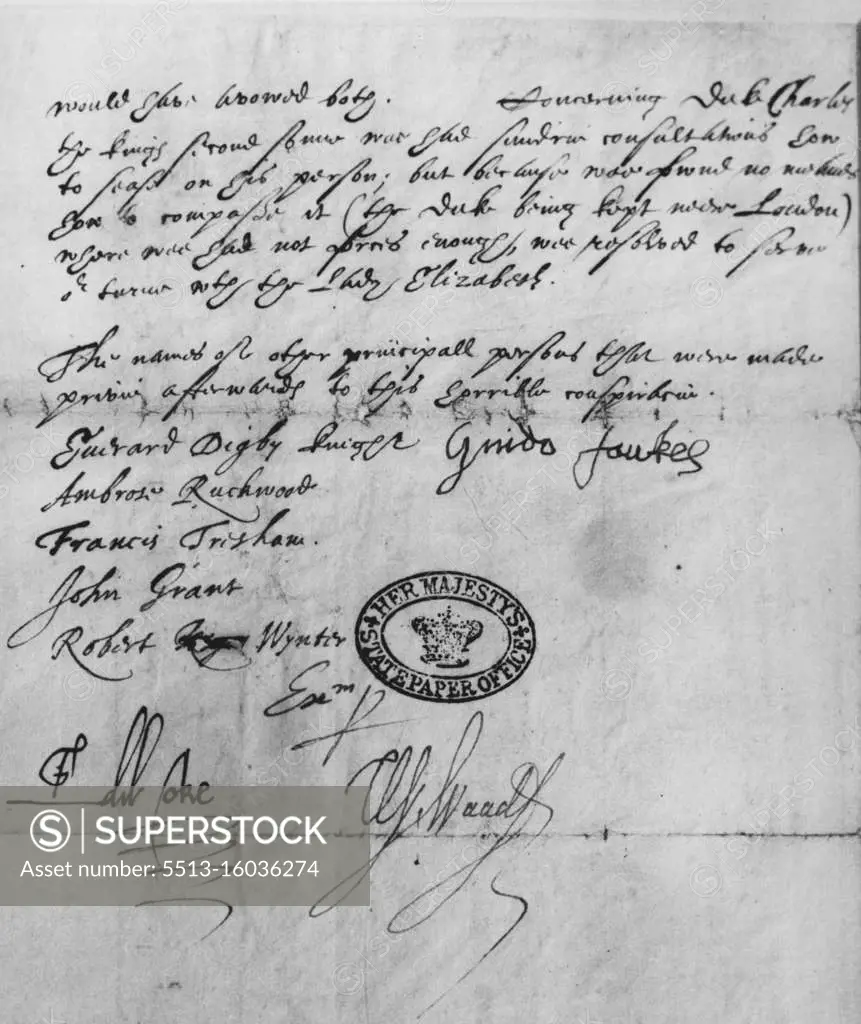 would have avowed both. Concerning Duke Charles
the kings second sonne wee had sundrie consultations how
to sease on his person; but because wee found no meanes
how to compasse it (the Duke being kept neere London)
where wee had not forces enough, wee resolved to serve
or turne wth the Lady Elizabeth.
The names of other principall persons that were made
privie afterwards to this horrible conspiracie.
Everard Digby knight Guido fawkes
Ambrose Ruckwood
Francis Tresham.
John Grant
Robert Wynter
HER MAJESTY'S
STATE PAPER OFFICE
Exm p
Edw Coke W Waad
SUPERSTOCK
Asset number: 5513-16036274